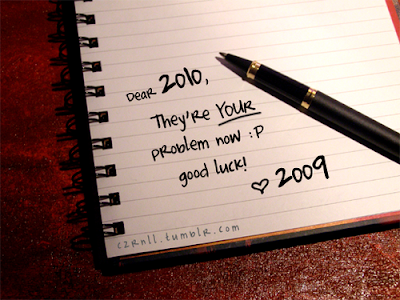 Dear 2010,
They're YOUR
problem now :P
good luck!
♡ 2009
czrnll.tumblr.com